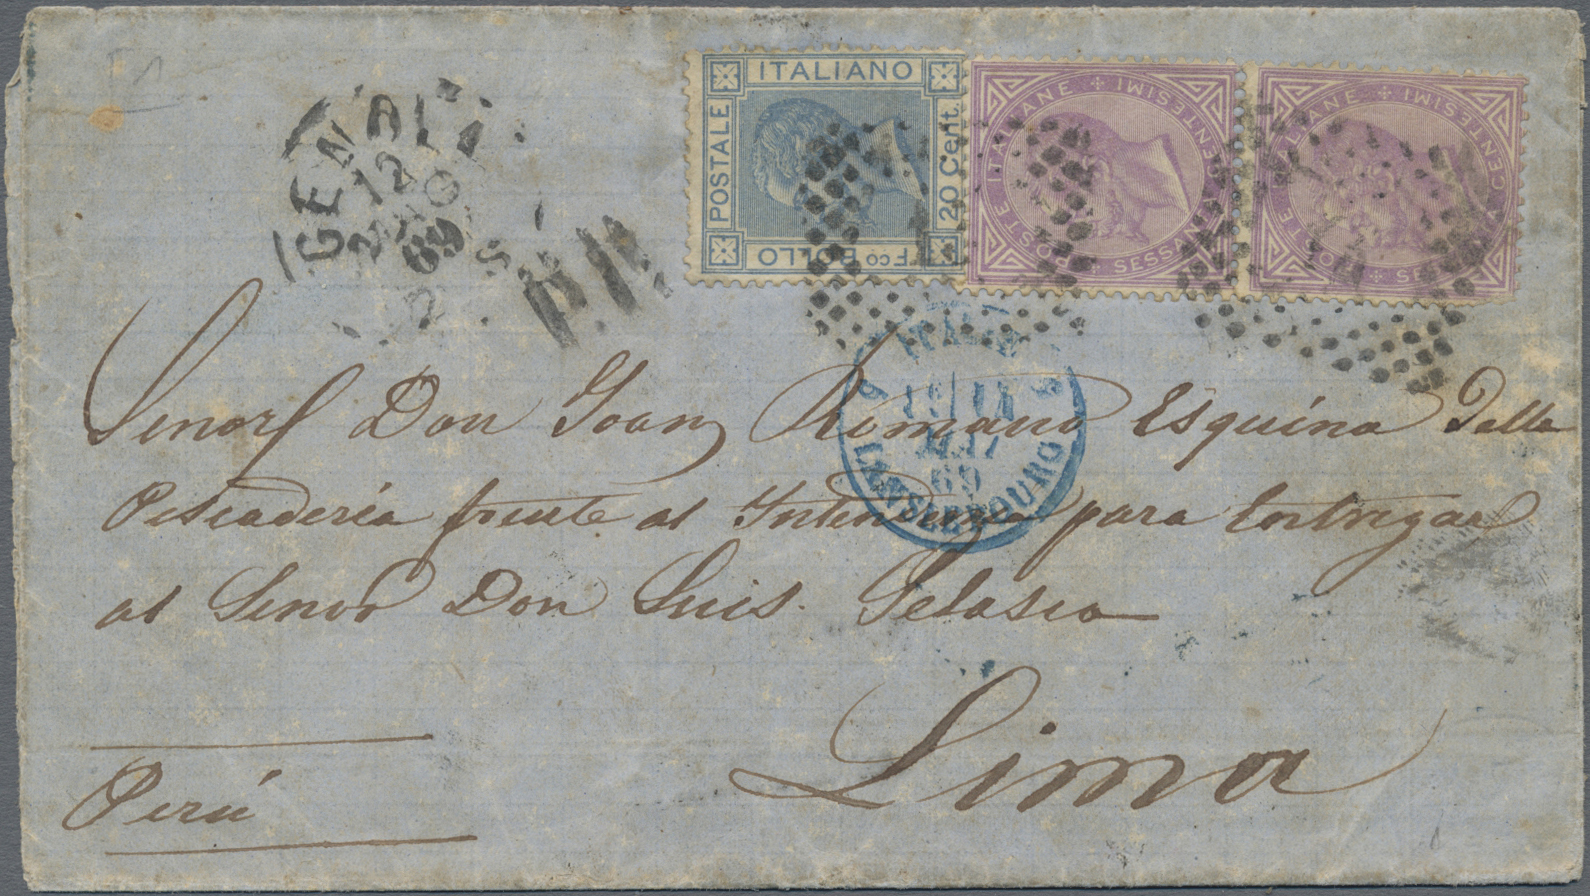 FCO BOLLO POSTALE ITALIANO 20 Cent.
POSTE ITALIANE SESSANTA CENTESIMI
POSTE ITALIANE CENTESIMI
GENOVA
12
MAG
69
ITALIE
MAI
69
LANSLEBOURG
Senor Don Joan Romano Esquina Della
Pescaderia frente al para Entregar
al Senor Don Luis Gelasio
Lima
Perú